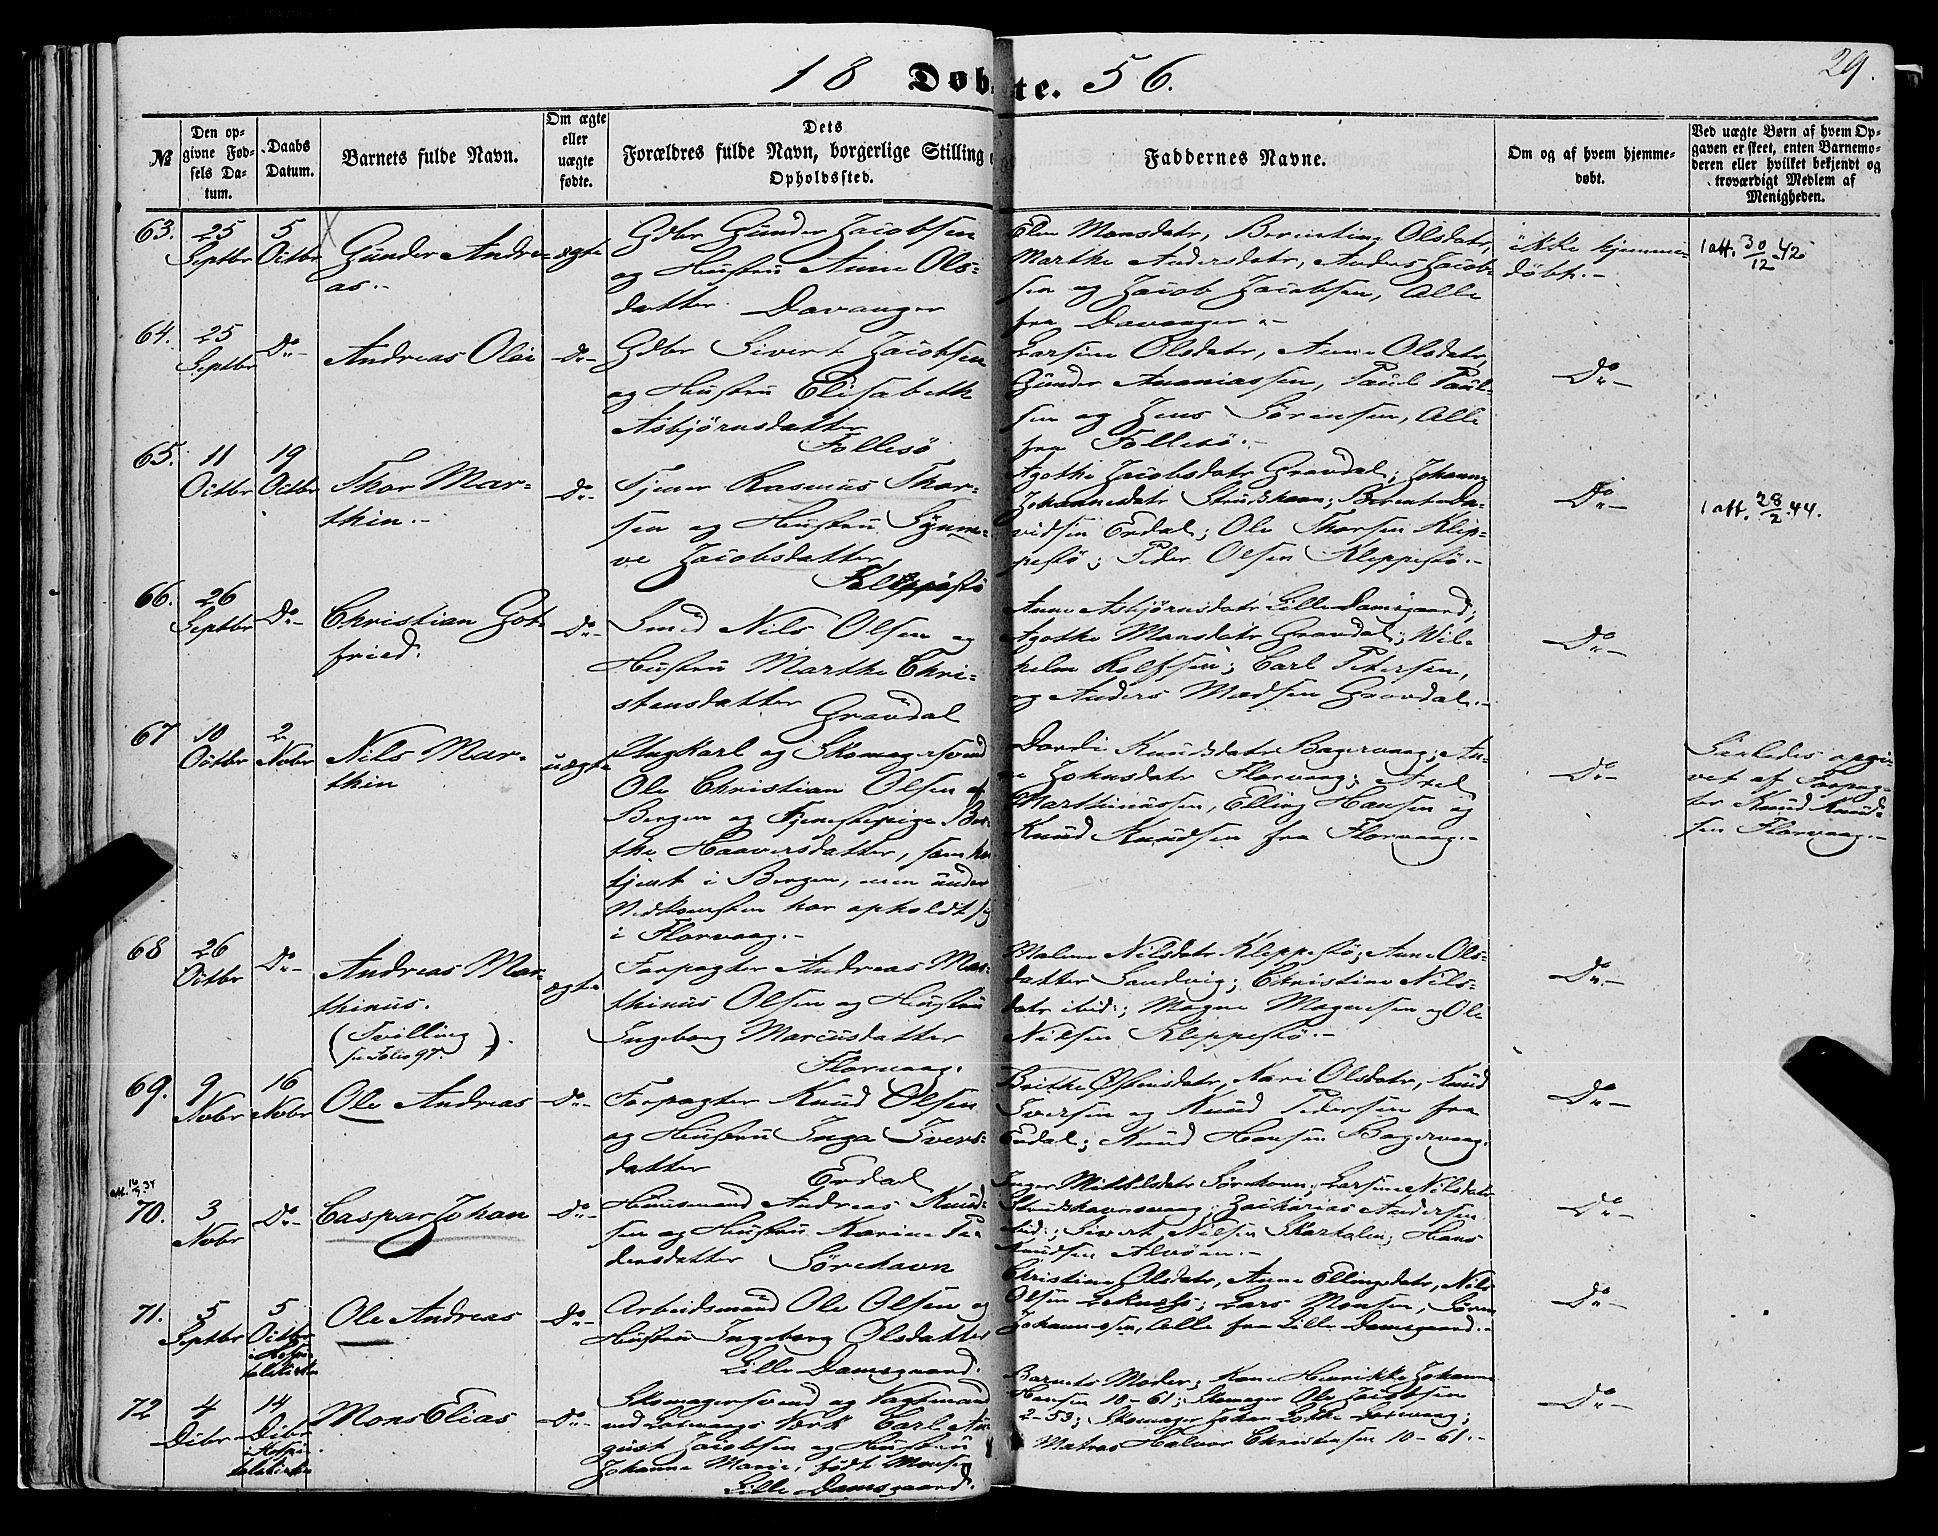 29.
18 Døbte. 56.
№
Den opgivne Fødsels Datum.
Daabs Datum.
Barnets fulde Navn.
Om ægte eller uægte fødte.
Dets Forældres fulde Navn, borgerlige Stilling
Opholdssted.
Faddernes Navne.
Om og af hvem hjemmedøbt.
Ved uægte Børn af hvem Opgaven er skeet, enten Barnemoderen eller hvilket bekjendt og troværdigt Medlem af Menigheden.
63. 25 Septbr 5 Octbr Günder Andreas.- ægte
Gdbr Günder Jacobsen
og Hustru Anne Ols-
datter Davanger
Elen Monsdatr, Berentine Olsdatr,
Marthe Andersdatr, Anders Jacob-
sen og Jacob Jacobsen, Alle
fra Davanger.-
ikke hjemme-
døbt.-
1 att. 30/12 42
64. 25 Septbr Do- Andreas Olai Do-
Gdbr Sivert Jacobsen
og Hustru Elisabeth
Asbjørnsdatter
Follesø
Larsine Olsdatr, Anne Olsdatr,
Günder Ananiassen, Paul Paul-
sen og Jens Sørensen, Alle
fra Follesø.-
Do-
65. 11 Octbr 19 Octbr Thor Mar-
thin.- Do-
Tjener Rasmus Thor-
sen og Hustru Synne-
ve Jacobsdatter
Kleppestø
Agothe Jacobsdatr Gravdal; Johanne
Johannesdatr Strudshavn; Berent Da-
vidsen Erdal; Ole Thorsen Klep-
pestø; Peder Olsen Kleppestø.-
Do-
1 att. 28/2 44.
66. 26 Septbr Do- Christian Got-
fried. Do-
Smed Nils Olsen og
Hustru Marthe Chri-
stensdatter
Gravdal
Anne Asbjørnsdatr Lille Damsgaard;
Agothe Monsdatr Gravdal; Wil-
helm Rolfsen; Carl Petersen,
og Anders Madsen Gravdal.-
Do-
67 10 Octbr 2 Novbr Nils Mar-
thin uægte
Ungkarl og Skomagersvend
Ole Christian Olsen af
Bergen og Tjenestepige Ber-
the Haaversdatter, som har
tjent i Bergen, men under
Nedkomsten har opholdt sig
i Florvaag.-
Dordi Knudsdatr Bagervaag; An-
ne Johnsdatr Florvaag; Axel
Marthinussen, Elling Hansen og
Knud Knudsen fra Florvaag.-
Do-
Saaledes opgi-
vet af Forpag-
ter Knud Knud-
sen Florvaag.-
68 26 Octbr Do- Andreas Mar-
thinus.
(Tvilling
se Folio 97.) ægte
Forpagter Andreas Mar-
thinus Olsen og Hustru
Ingeborg Marcusdatter
Florvaag.
Malene Nilsdatr Kleppestø; Anne Ols-
datter Sandvig; Christine Nils-
datr ibid:; Magne Magnesen og Ole
Nilsen Kleppestø.-
Do-
69. 9 Novbr 16 Novbr Ole Andreas Do-
Forpagter Knud Olsen
og Hustru Inga Ivers-
datter
Erdal
Brithe Østensdatr, Kari Olsdatr, Knud
Iversen og Knud Pedersen fra
Erdal; Knud Hansen Bagervaag.
Do-
70. 3 Novbr Do- Caspar Johan Do-
Huusmand Andreas Knud-
sen og Hustru Karine Pe-
dersdatter Sørehavn
Inger Mikkelsdatr Sørehavn; Larsine Nilsdatr
Strudshavnsvaag; Zacharias Andersen
ibid:; Sivert Nilsen Skarholm; Hans
Knudsen Alvøen.-
Do-
71. 5 Septbr 5 Octbr i Hospi-
talskirke Ole Andreas Do-
Arbeidsmand Ole Olsen og
Hustru Ingeborg Olsdatter
Lille Damsgaard.
Christine Olsdatr, Anne Ellingsdatr, Nils
Olsen Leknæss; Lars Monsen, Søren
Johannesen, Alle fra Lille Damsgaard.-
Do-
72 4 Decbr 14 Decbr i Hospi-
talskirke Mons Elias Do-
Skomagersvend og Vagtmand
ved Laxevaags Værk Carl Au-
gust Jacobsen og Hustru
Johanne Marie, født Monsen
Lille Damsgaard.
Barnets Moder; Kone Henrikke Johanne
Hansen 10-61; Skomager Ole Jacobsen
2-53; Skomager Johan Laxevaag;
Matros Halvor Christensen 10-61.-
Do-